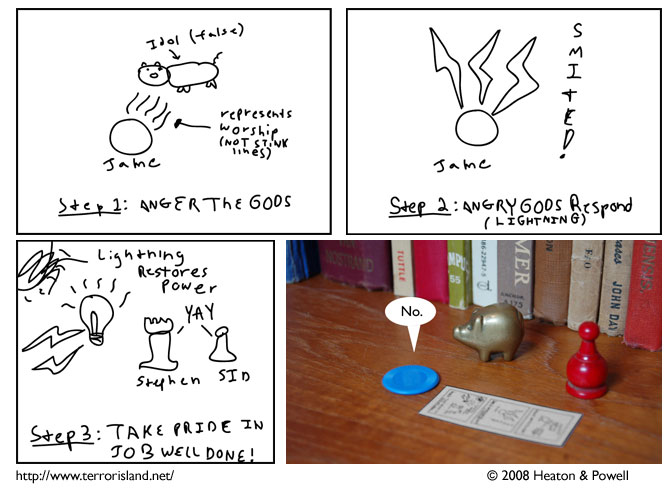 Idol (false)
represents
worship
(NOT STINK
lines)
Jame
Step 1: ANGER THE GODS
SMITED!
Jame
Step 2: ANGRY GODS Respond
(LIGHTNING)
Lightning
Restores
Power
YAY
Stephen
SID
Step 3: TAKE PRIDE IN
JOB WELL DONE!
No.
TUTTLE
NOSTRAND
MPUS
55
MER
ANCHOR
A173
F/O
JOHN DAY
http://www.terrorisland.net/
© 2008 Heaton & Powell